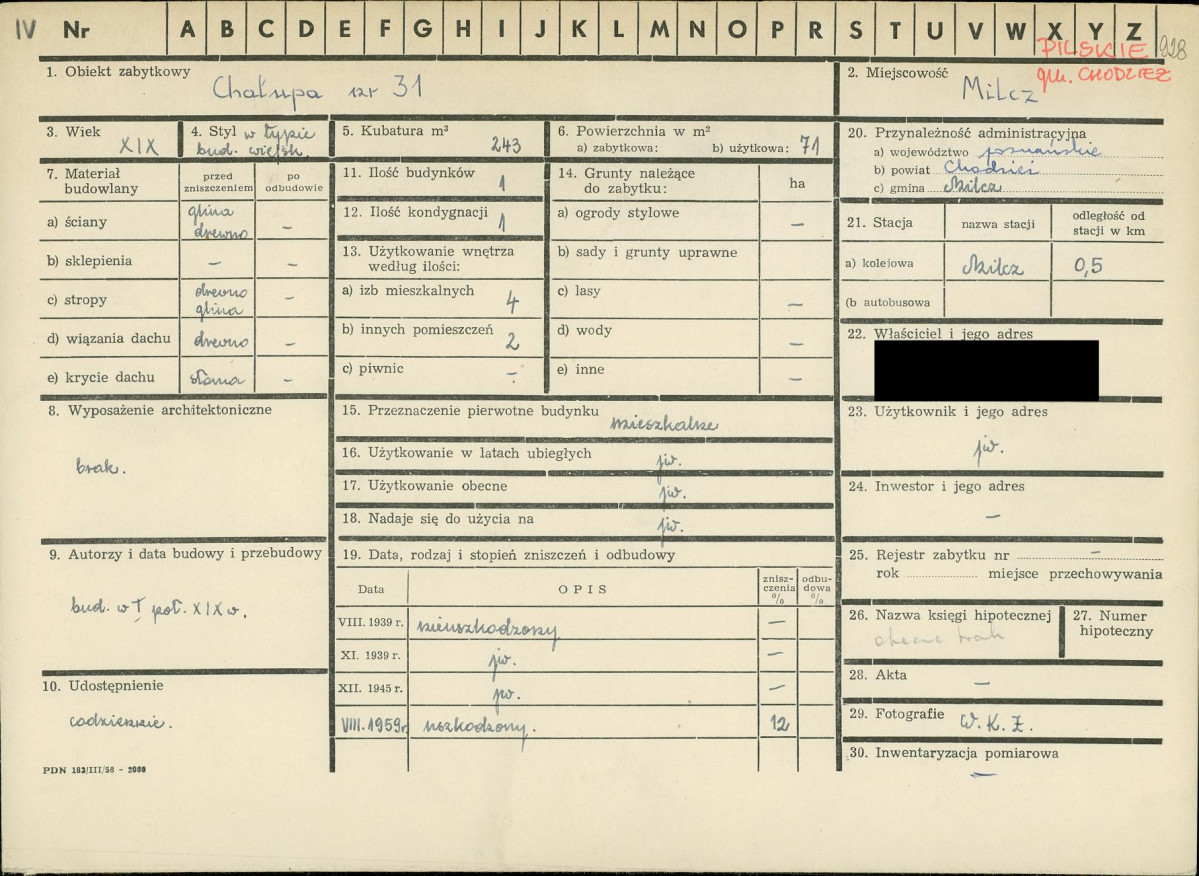 IV Nr A B C D E F G H I J K L M N O P R S T U V W X Y Z
PILSKIE 928
gm. CHODZIEŻ
1. Obiekt zabytkowy
Chałupa nr 31
2. Miejscowość
Milcz
3. Wiek
XIX
4. Styl w typie
bud. wiejsk.
5. Kubatura m³
243
6. Powierzchnia w m²
a) zabytkowa: b) użytkowa: 71
7. Materiał budowlany
przed zniszczeniem
po odbudowie
a) ściany glina drewno –
b) sklepienia – –
c) stropy drewno glina –
d) wiązania dachu drewno –
e) krycie dachu słoma –
8. Wyposażenie architektoniczne
brak.
9. Autorzy i data budowy i przebudowy
bud. w I poł. XIX w.
10. Udostępnienie
codziennie.
PDN 183/III/58 – 2000
11. Ilość budynków 1
12. Ilość kondygnacji 1
13. Użytkowanie wnętrza
według ilości:
a) izb mieszkalnych 4
b) innych pomieszczeń 2
c) piwnic –
14. Grunty należące
do zabytku: ha
a) ogrody stylowe –
b) sady i grunty uprawne
c) lasy –
d) wody –
e) inne –
15. Przeznaczenie pierwotne budynku
mieszkalne
16. Użytkowanie w latach ubiegłych jw.
17. Użytkowanie obecne jw.
18. Nadaje się do użycia na jw.
19. Data, rodzaj i stopień zniszczeń i odbudowy
Data OPIS znisz-czenia % odbu-dowa %
VIII. 1939 r. nieuszkodzony –
XI. 1939 r. jw. –
XII. 1945 r. jw. –
VIII. 1959 r. uszkodzony. 12
20. Przynależność administracyjna
a) województwo poznańskie
b) powiat Chodzież
c) gmina Milcz
21. Stacja nazwa stacji odległość od stacji w km
a) kolejowa Milcz 0,5
(b autobusowa
22. Właściciel i jego adres
23. Użytkownik i jego adres
jw.
24. Inwestor i jego adres
–
25. Rejestr zabytku nr –
rok miejsce przechowywania
26. Nazwa księgi hipotecznej
obecnie brak
27. Numer
hipoteczny
28. Akta –
29. Fotografie W. K. Z.
30. Inwentaryzacja pomiarowa
–